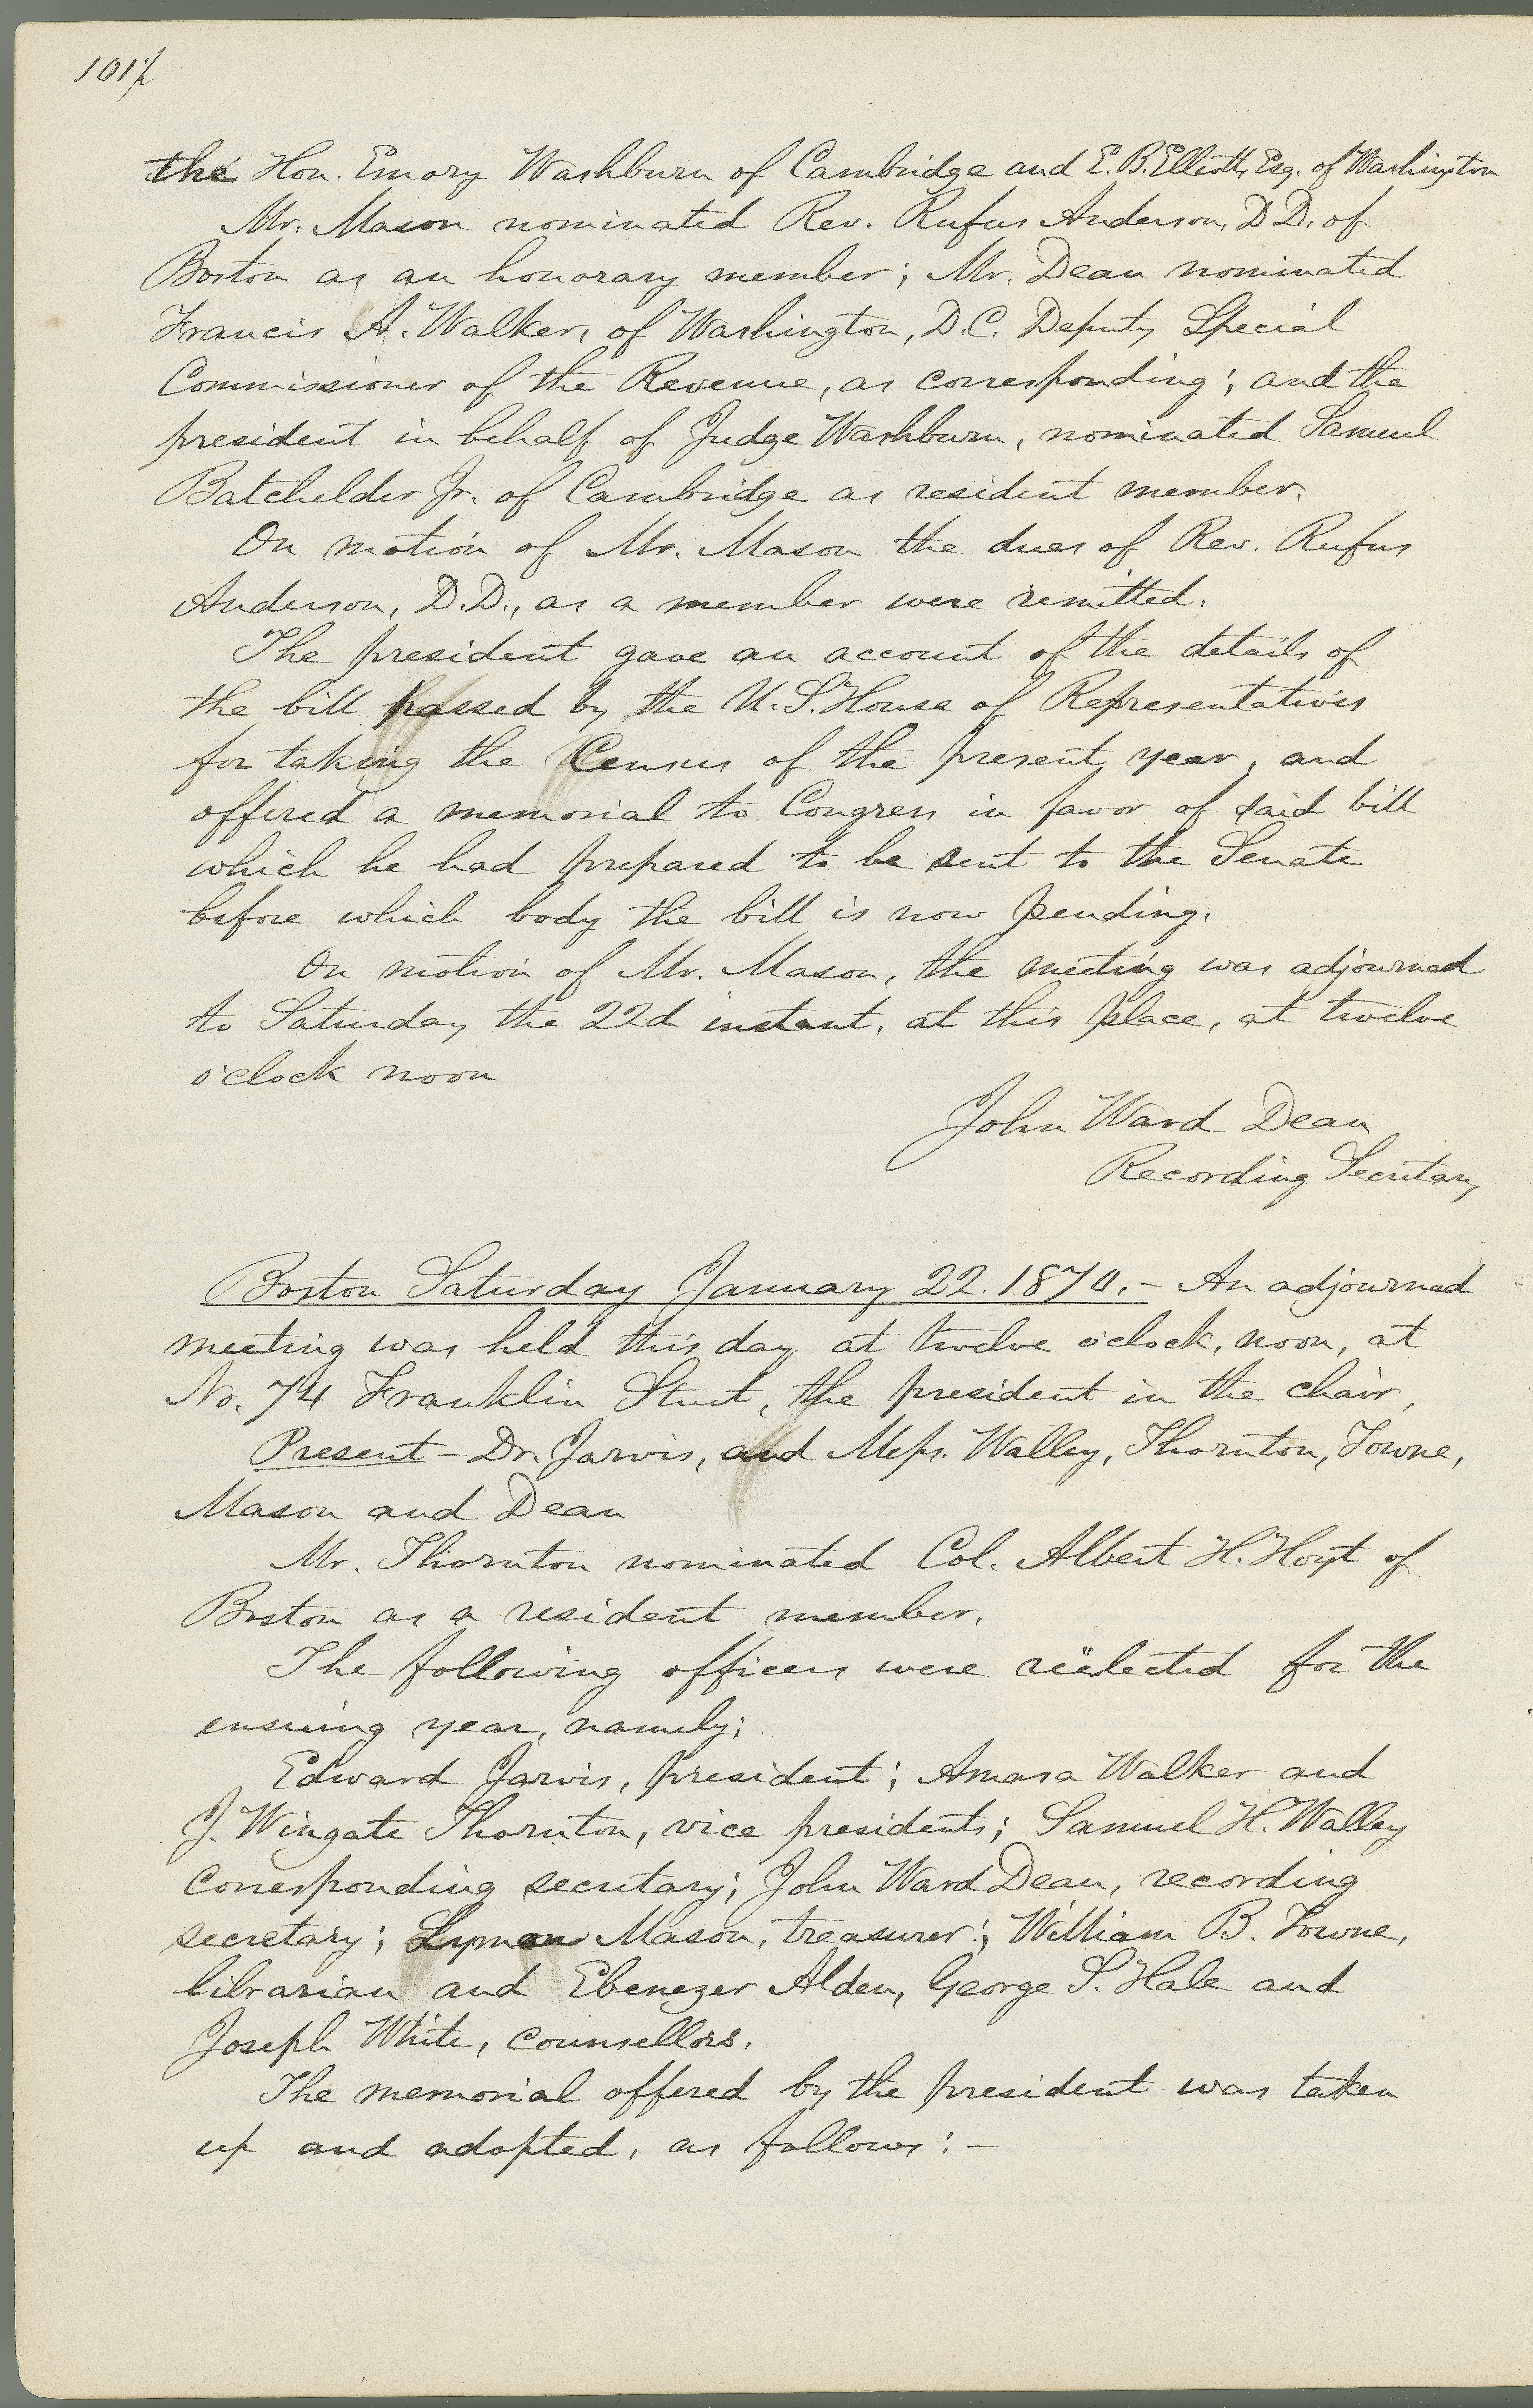 101½
the Hon. Emory Washburn of Cambridge and E. B. Elliott, Esq. of Washington
Mr. Mason nominated Rev. Rufus Anderson, D.D. of
Boston as an honorary member; Mr. Dean nominated
Francis A. Walker, of Washington, D.C. Deputy Special
Commissioner of the Revenue, as corresponding; and the
president in behalf of Judge Washburn, nominated Samuel
Batchelder Jr. of Cambridge as resident member.
On motion of Mr. Mason the dues of Rev. Rufus
Anderson, D.D., as a member were remitted.
The president gave an account of the details of
the bill passed by the U.S. House of Representatives
for taking the Census of the present year, and
offered a memorial to Congress in favor of said bill
which he had prepared to be sent to the Senate
before which body the bill is now pending.
On motion of Mr. Mason, the meeting was adjourned
to Saturday the 22d instant, at this place, at twelve
o'clock noon
John Ward Dean
Recording Secretary
Boston Saturday January 22. 1870. – An adjourned
meeting was held this day at twelve o'clock, noon, at
No. 74 Franklin Street, the president in the chair,
Present – Dr. Jarvis, and Messrs. Walley, Thornton, Towne,
Mason and Dean
Mr. Thornton nominated Col. Albert H. Hoyt of
Boston as a resident member.
The following officers were reëlected for the
ensuing year, namely;
Edward Jarvis, president; Amasa Walker and
J. Wingate Thornton, vice presidents; Samuel H. Walley
corresponding secretary; John Ward Dean, recording
secretary; Lyman Mason, treasurer; William B. Towne,
librarian and Ebenezer Alden, George S. Hale and
Joseph White, counsellors.
The memorial offered by the president was taken
up and adopted, as follows: –